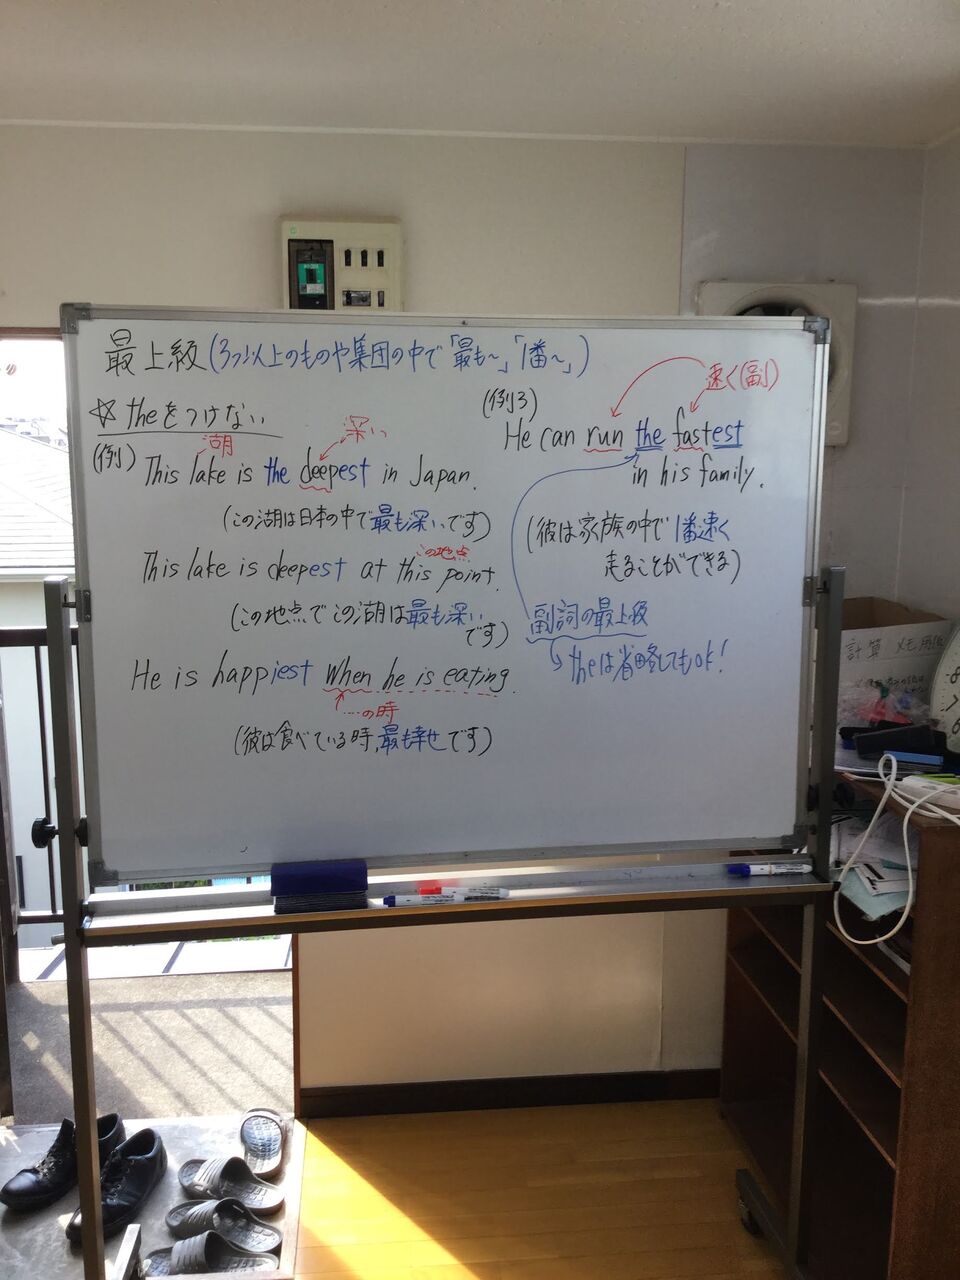 最上級(3つ以上のものや集団の中で「最も〜」「1番〜」)
☆ theをつけない
湖
深い
(例)
This lake is the deepest in Japan.
(この湖は日本の中で最も深いです)
この地点
This lake is deepest at this point.
(この地点でこの湖は最も深い
です)
He is happiest when he is eating.
……の時
(彼は食べている時,最も幸せです)
(例3)
速く(副)
He can run the fastest
in his family.
(彼は家族の中で1番速く
走ることができる)
副詞の最上級
theは省略してもOK!
計算 メモ用紙